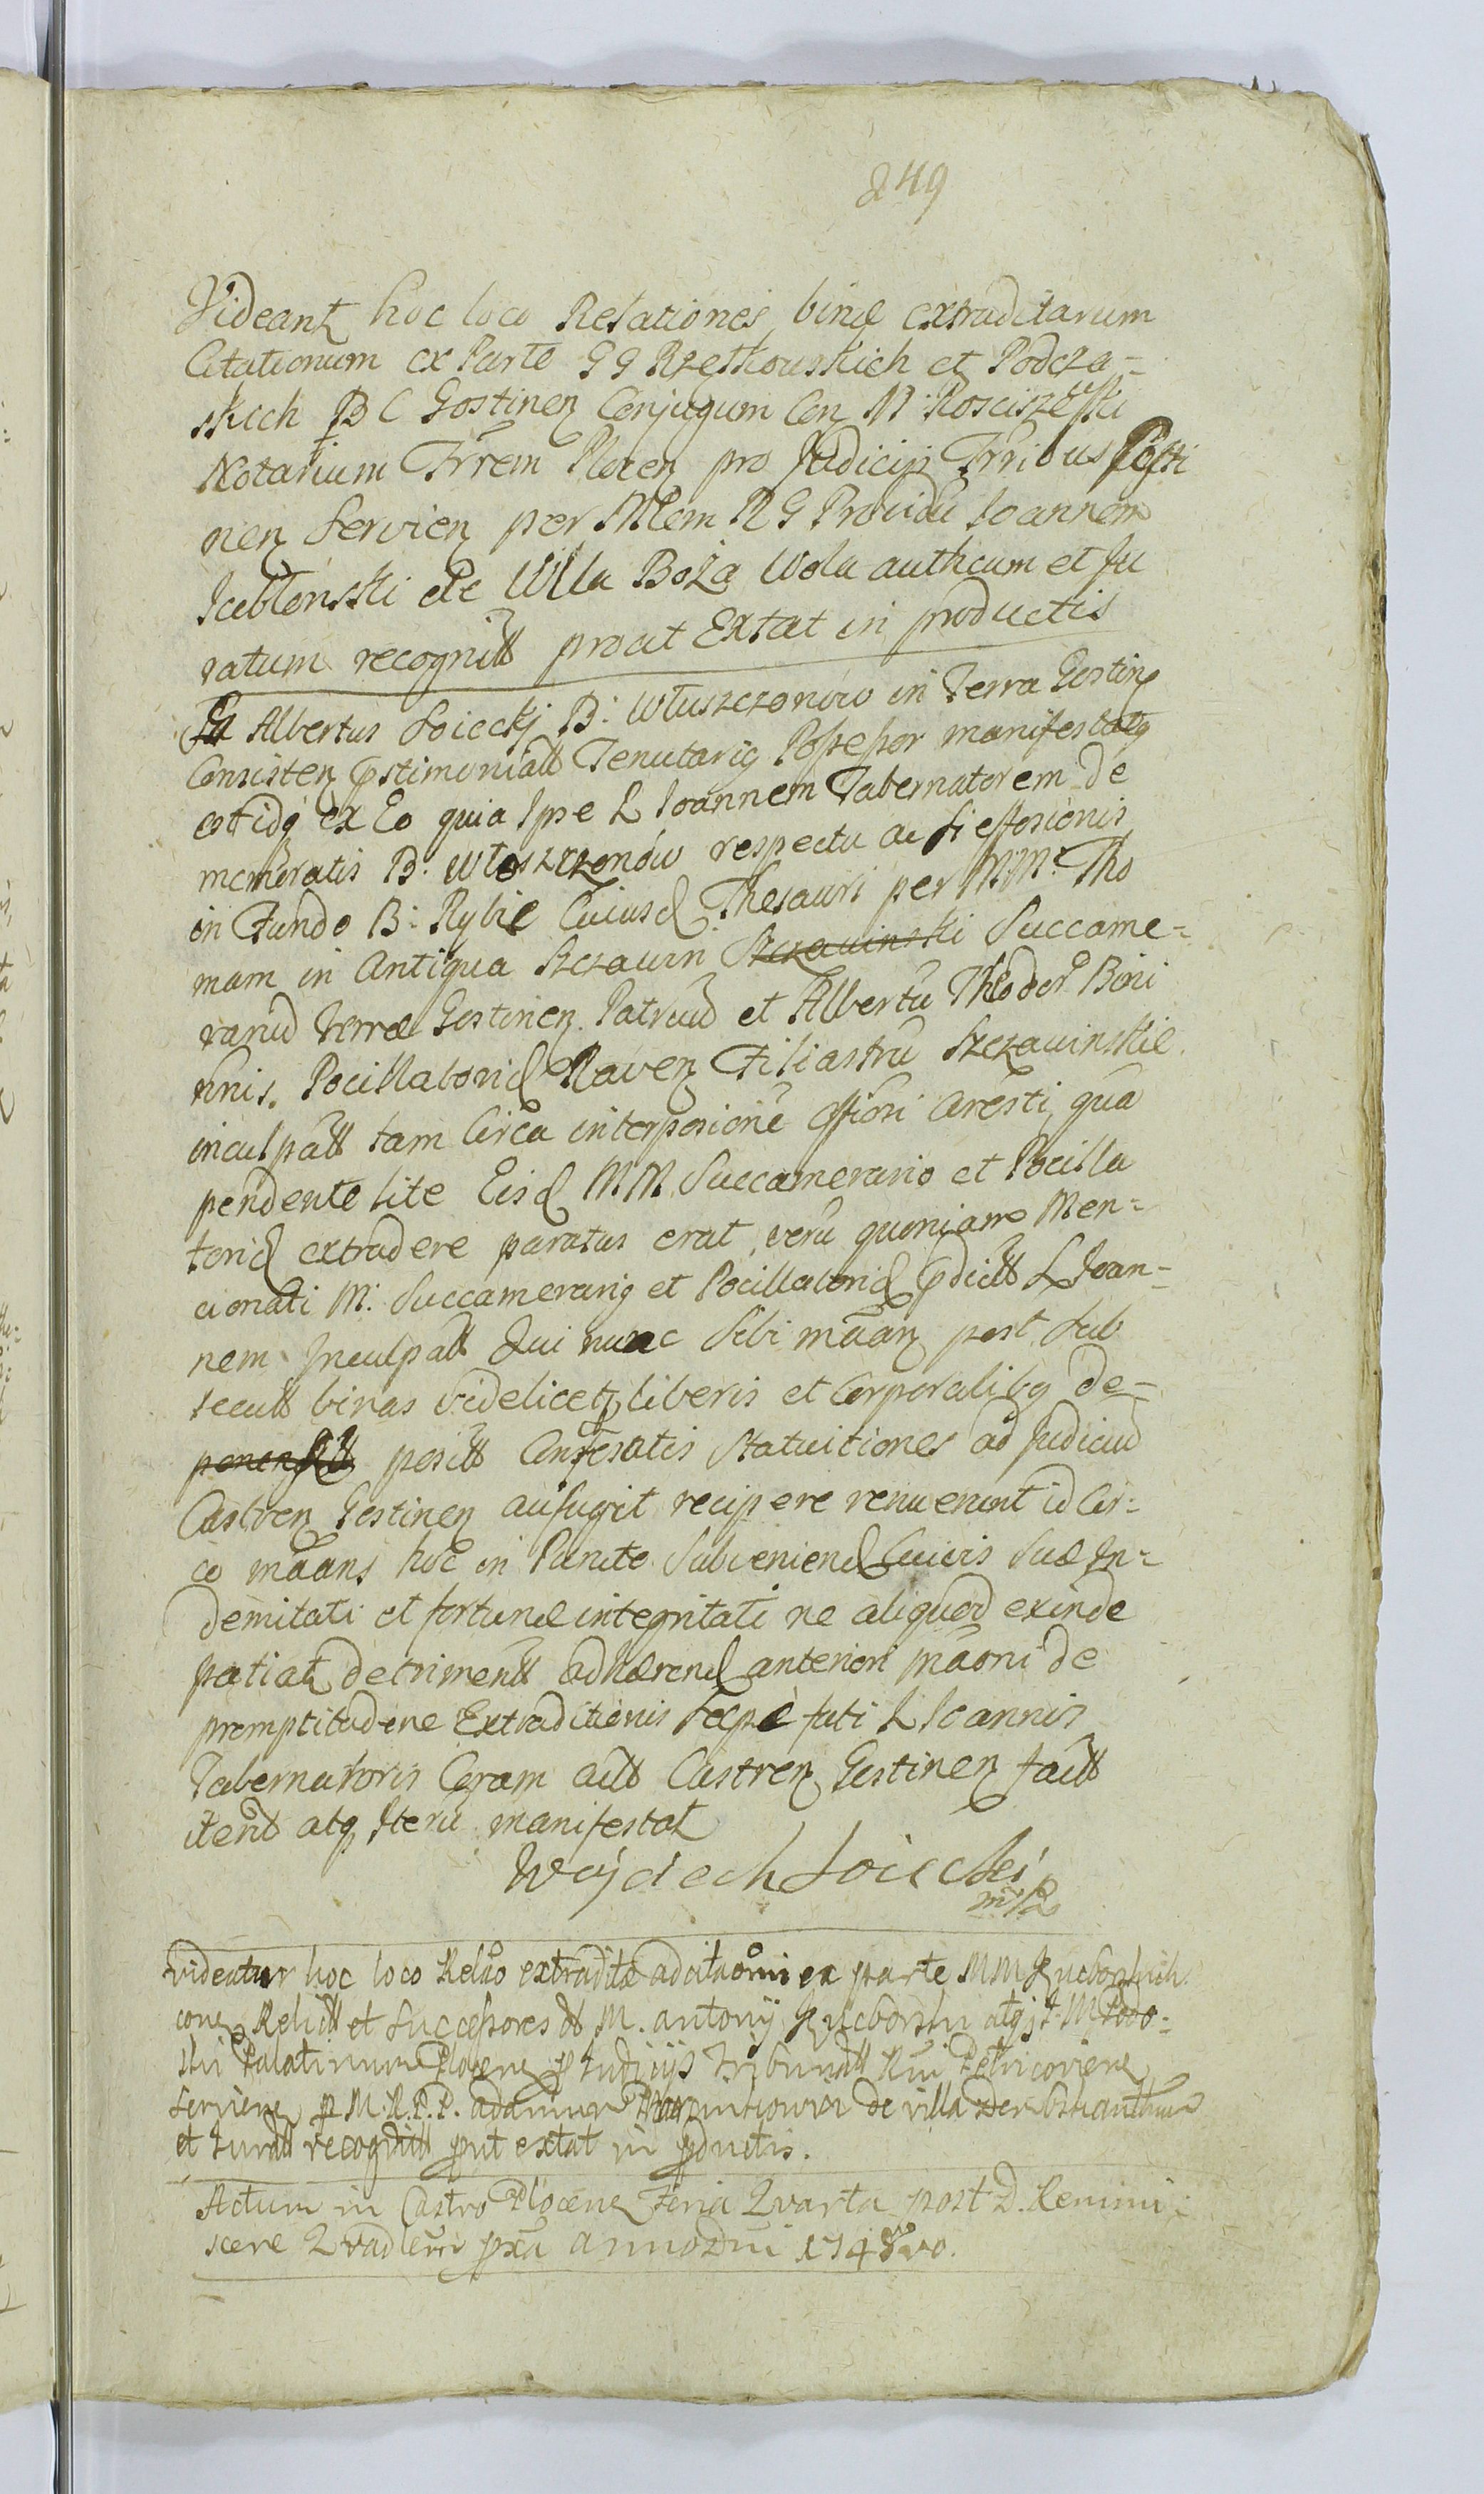 249
Videant hoc loco Relationes binæ extraditarum
Citationum ex Parte GG Rzeszkowskich et Podcza-
skich B C Gostinen Conjugum Con M Rosciszeski
Notarium Trrem Plocen pro Judicijs Trribus Gosti
nen Servien per Mlem R G Providu Joannem
Jeblonski de Villa Boża Wola authcum et Ju
ratum recognitt prout Extat in productis
Albertus Soiecki B: Wluszczonow in Terra Gostin
Consisten Tenutariq Possessor manifestatq
estidq ex Eo quia Ipse L Joannem Tabernatorem de
memoratis B: Wloszczonow respectu
in Fundo B: Rybie Cuiusd Thesauri per MM: Tho
mam in Antiqua Szczawin Szczawinski Succame-
rariu Terræ Gostinen Patruu et Albertu Theodor Boni
Pocillatorid Raven Filiastru Szczawinskie
inculpatt tam Circa interpositione Offiosi Aresti qua
pendente lite Eisd MM Succamerario et Pocilla
torid extradere paratus erat, veru quoniam Men-
cionati M: Succamerariq et Pocillatorid pdictt L Joan-
nem Inculpatt Qui nunc Sibi post Sub
secutt binas videlicet liberis et Corporalibq de-
positt Confesatis Statuitiones ad Judiciu
Castren Gostinen aufugit recipere renuerunt id Cir-
co mãans hoc in Puncto Subveniend Cuivis Suæ In-
demitati et fortunæ integritati ne aliquod exinde
patiat detrimentt adhærend anteriori mãoni de
promptitudene Extraditionis Sæpe fati L Joannis
Tabernatoris Coram actt Castren Gostinen factt
itent atq Iteru manifestat
Woyciech Soiecki
mp
videatur hoc loco Relão extraditæ adcitaõni ex parte MM
con Relictt et Successores M. antonij atq
Palatinum Plocen p Judicijs Tribunatt Petricovien
Servien p M. R. P. P. adamum de villa
et Juratt recognitt put extat in pductis.
Actum in Castro Plocen Feria Qvarta post D. Remini-
scere Qvadlem pxa anno Dni 1748vo.